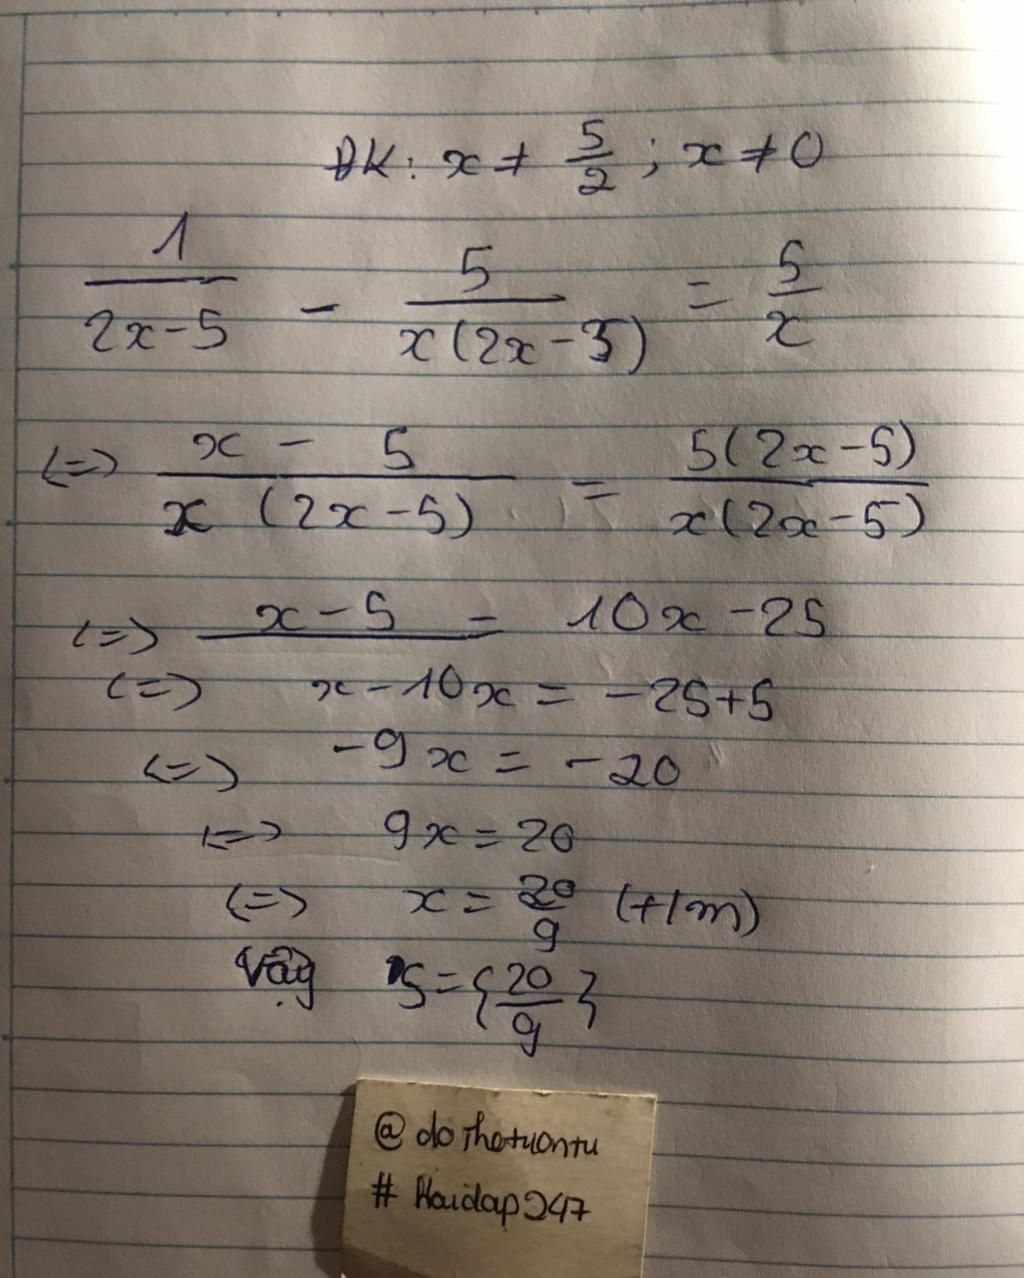 ĐK: x ≠ 5/2 ; x ≠ 0
1/(2x-5) - 5/(x(2x-3)) = 5/x
<=> (x - 5)/(x (2x-5)) = 5(2x-5)/(x(2x-5))
<=> x-5 = 10x -25
<=> x-10x = -25+5
<=> -9x = -20
<=> 9x = 20
<=> x = 20/9 (t/m)
Vậy S={20/9}
@dothotuontu
# Hoidap247